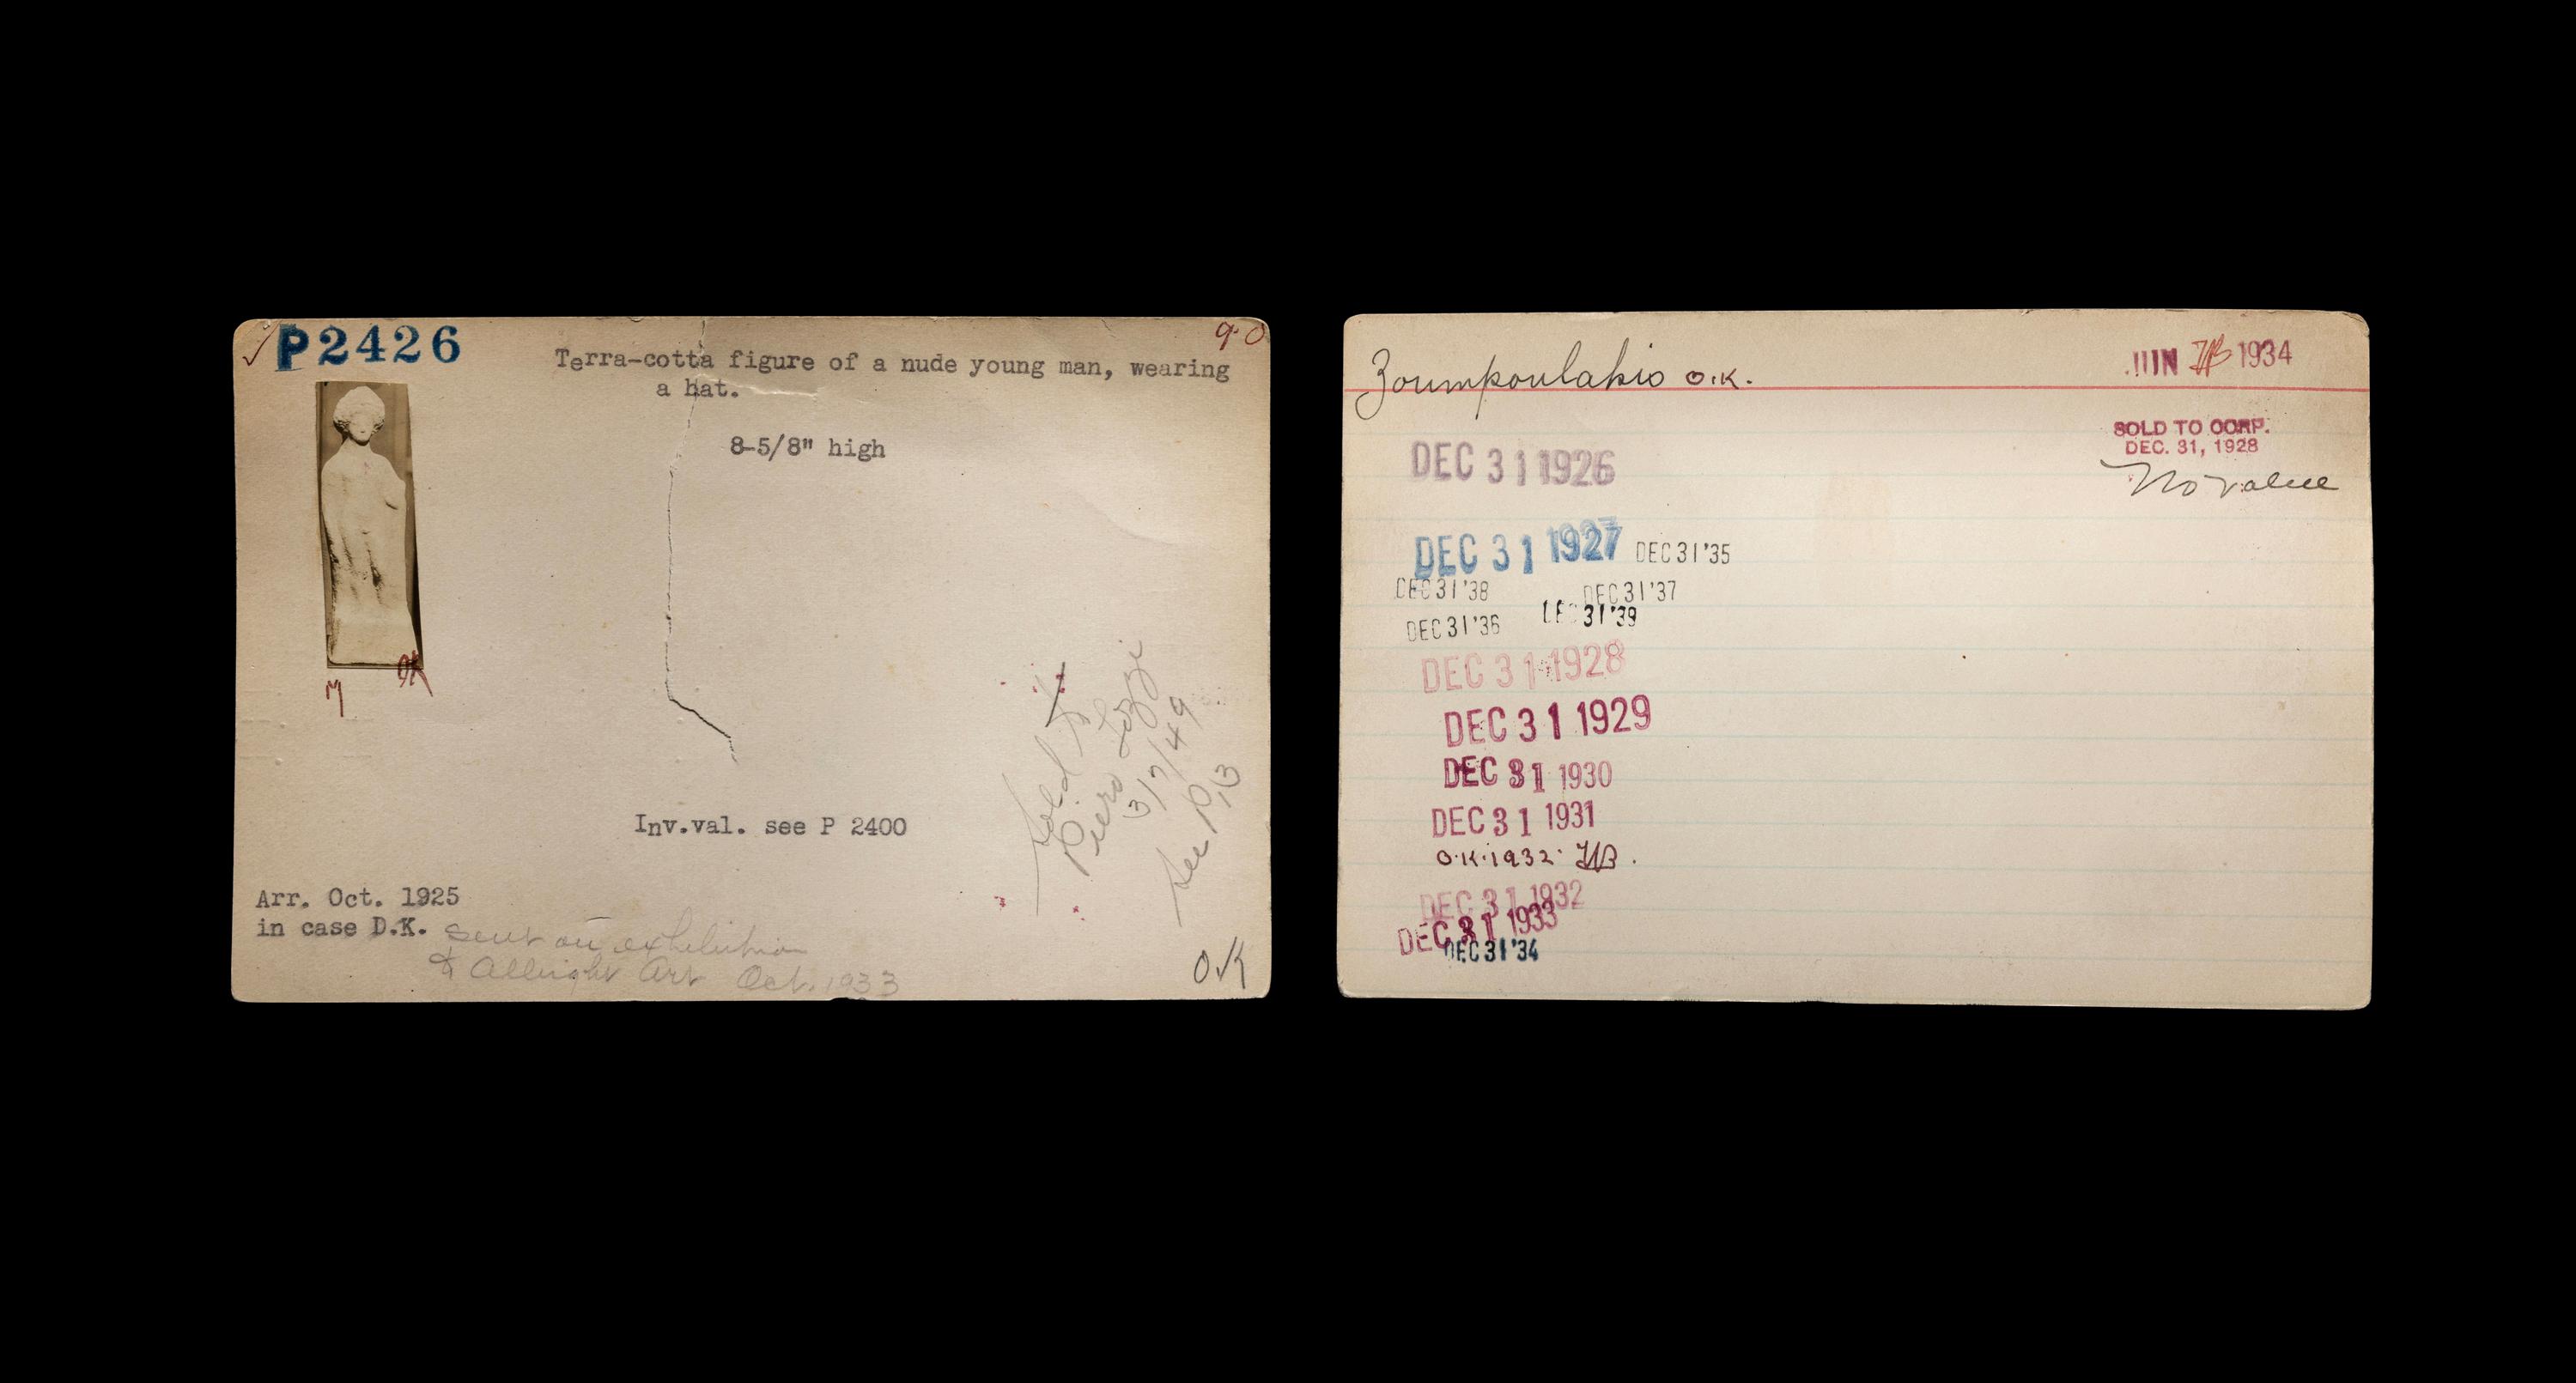 P2426
9.0
Terra-cotta figure of a nude young man, wearing
a hat.
8-5/8" high
M
OK
Inv.val. see P 2400
Sold to
Piero Tozzi
3/7/49
see P.13
Arr. Oct. 1925
in case D.K.
sent on exhibition
to Albright Art Oct. 1933
OK
Zoumpoulakis O.K.
JUN 1934
SOLD TO CORP.
DEC. 31, 1928
No value
DEC 31 1926
DEC 31 1927
DEC 31 '35
DEC 31 '38
DEC 31 '37
DEC 31 '36
DEC 31 '39
DEC 31 1928
DEC 31 1929
DEC 31 1930
DEC 31 1931
O.K. 1932
DEC 31 1932
DEC 31 1933
DEC 31 '34